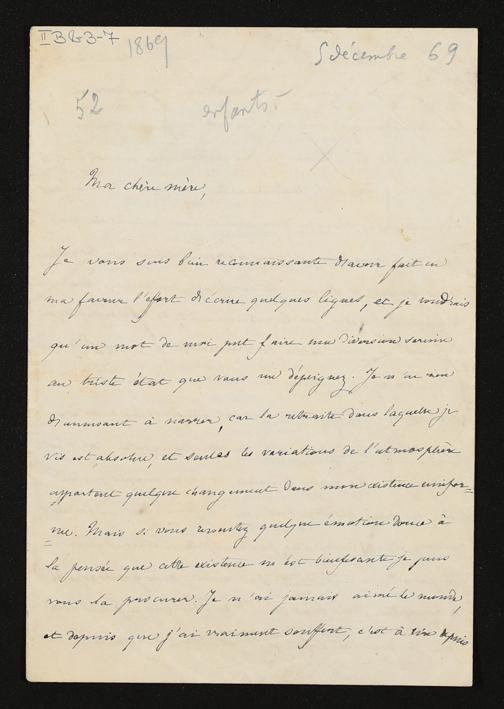 II B & 3-7
1869
5 décembre 69
52
enfants
Ma chère mère,
Je vous suis bien reconnaissante d'avoir fait en
ma faveur l'effort d'écrire quelques lignes, et je voudrais
qu'un mot de moi put faire une diversion sereine
au triste état que vous me dépeignez. Je n'ai rien
d'amusant à narrer, car la retraite dans laquelle je
vis est absolue, et seules les variations de l'atmosphère
apportent quelque changement dans mon existence unifor=
=me. Mais si vous ressentez quelque émotion douce à
la pensée que cette existence m'est bienfesante je puis
vous la procurer. Je n'ai jamais aimé le monde,
et depuis que j'ai vraiment souffert, c'est à